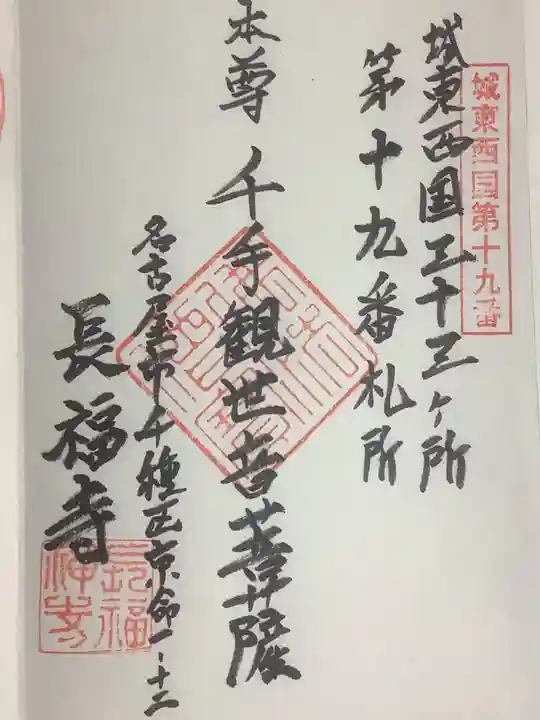 城東西国第十九番
城東西国三十三ヶ所
第十九番札所
本尊 千手観世音菩薩
名古屋市千種区京命一-十二
長福寺